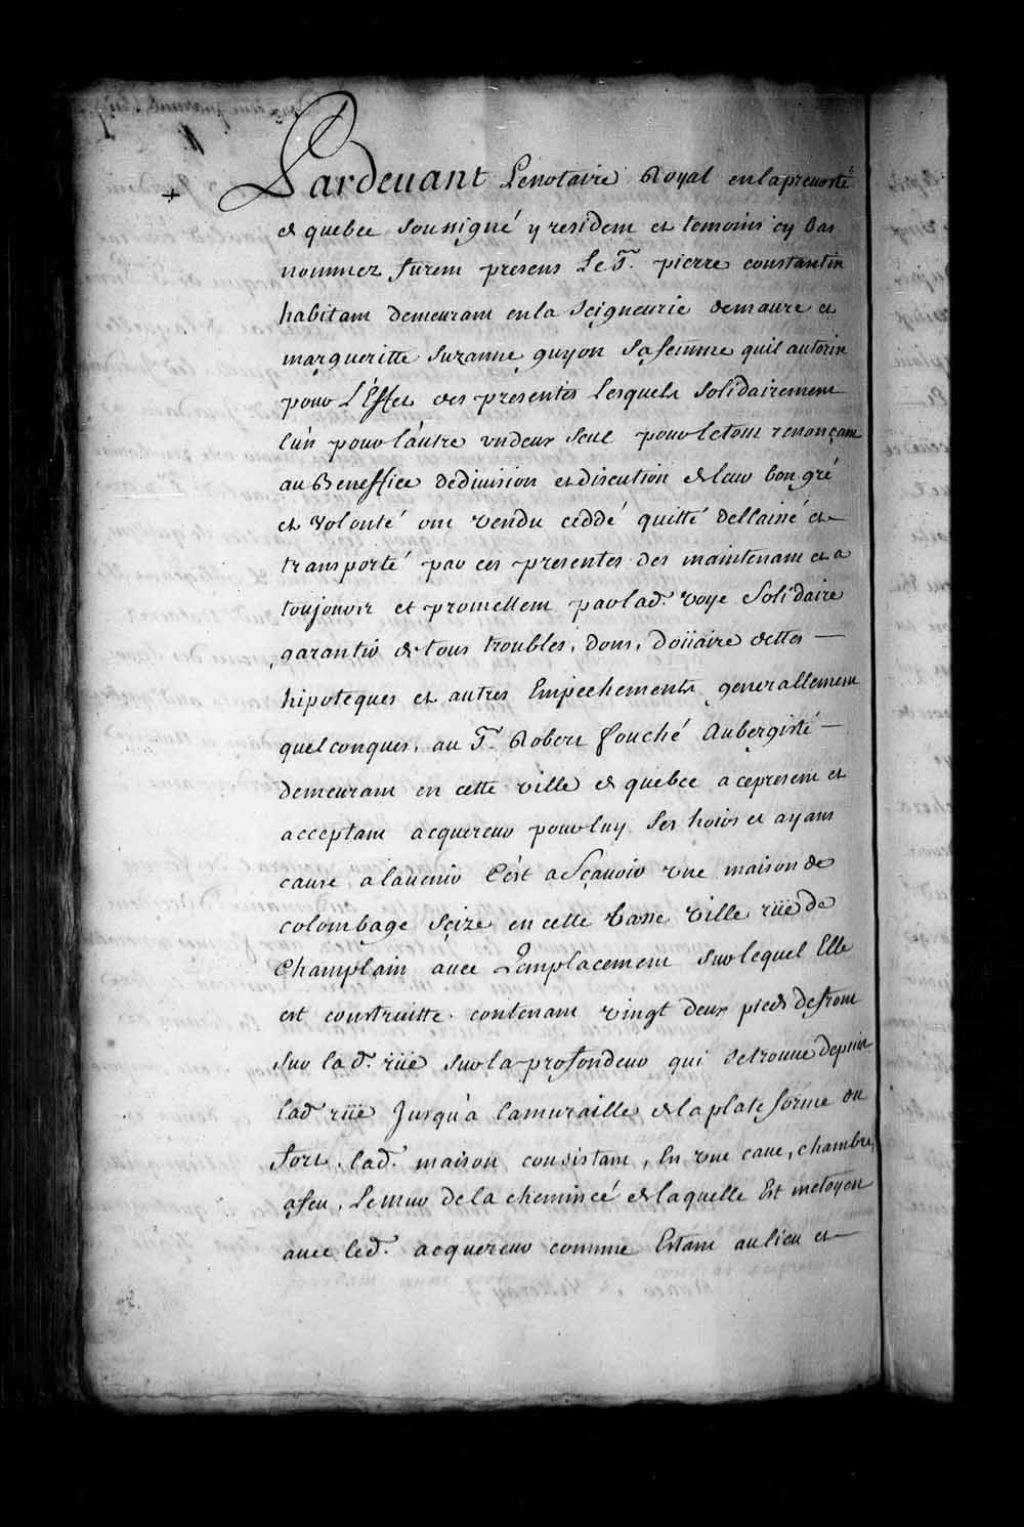 Pardeuant Lenotaire Royal enlapreuosté
de quebec soussigné y resident et temoins cy bas
nommez furent presens Le Sr. pierre constantin
habitant demeurant enla Seigneurie demaure et
margueritte Suzanne guyon Sa femme quil autorise
pour L'Effet des presentes Lesquels Solidairement
l'un pour l'autre undeux Seul pourletout renonçant
au Beneffice dediuision et discution de leur bon gré
et Volonté ont vendu ceddé quitté dellaissé et
transporté par ces presentes des maintenant et a
toujours et promettent parlad. voye Solidaire
garantir de tous troubles, dons, doüaire dettes —
hipoteques et autres Empechements generallement
quelconques, au Sr. Robert fouché Aubergiste —
demeurant en cette ville de quebec a cepresent et
acceptant acquereur pour luy Ses hoirs et ayans
cause alauenir C'est aSçauoir une maison de
colombage Seize en cette basse ville rüe de
Champlain auec L'emplacement surlequel Elle
est construitte contenant vingt deux pieds defront
sur lad. rüe sur la profondeur qui setrouue depuis
lad rüe Jusqu'a lamuraille de la plate forme du
fort, lad. maison consistant, En une caue, chambre
afeu, Lemur de la cheminée de laquelle Est metoyen
auec led. acquereur comme Estant aulieu et —